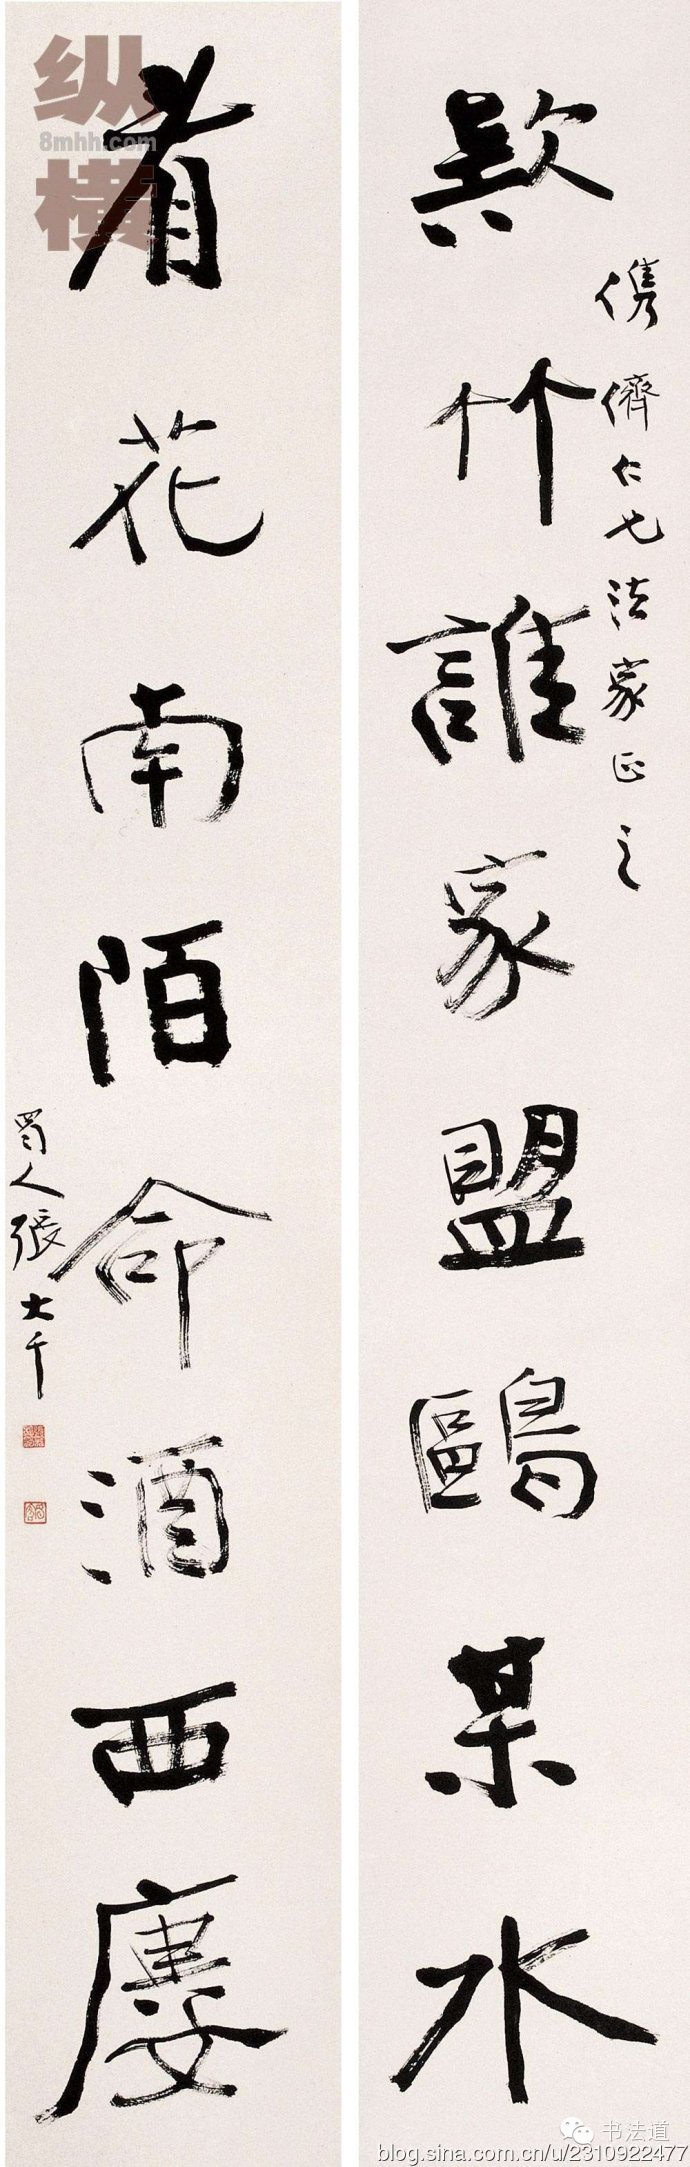 款竹誰家盟鷗某水
儁儕仁兄法家正之
看花南陌命酒西廔
蜀人張大千
纵横
8mhh.com
书法道
blog.sina.com.cn/u/2310922477